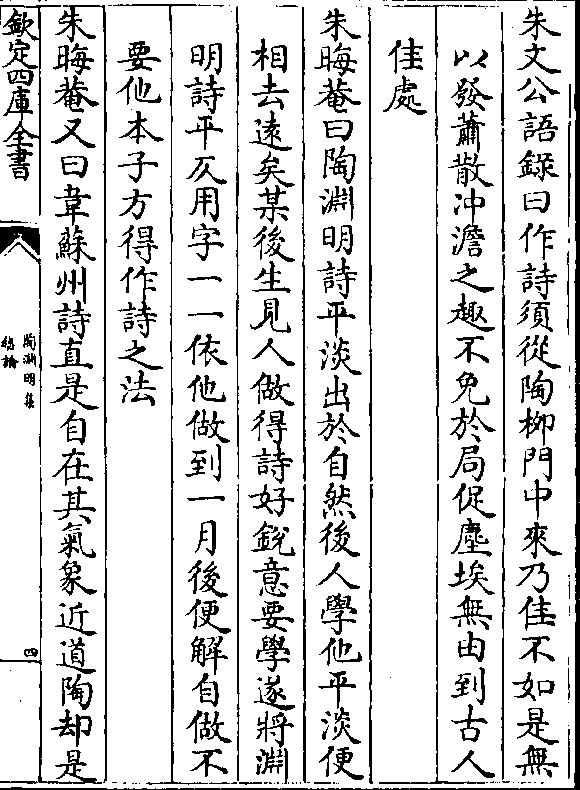 朱文公語錄曰作詩須從陶柳門中來乃佳不如是無
以發蕭散冲澹之趣不免於局促塵埃無由到古人
佳處
朱晦菴曰陶淵明詩平淡出於自然後人學他平淡便
相去遠矣某後生見人做得詩好銳意要學遂將淵
明詩平仄用字一一依他做到一月後便解自做不
要他本子方得作詩之法
朱晦菴又曰韋蘇州詩直是自在其氣象近道陶却是
欽定四庫全書
陶淵明集
總論
四